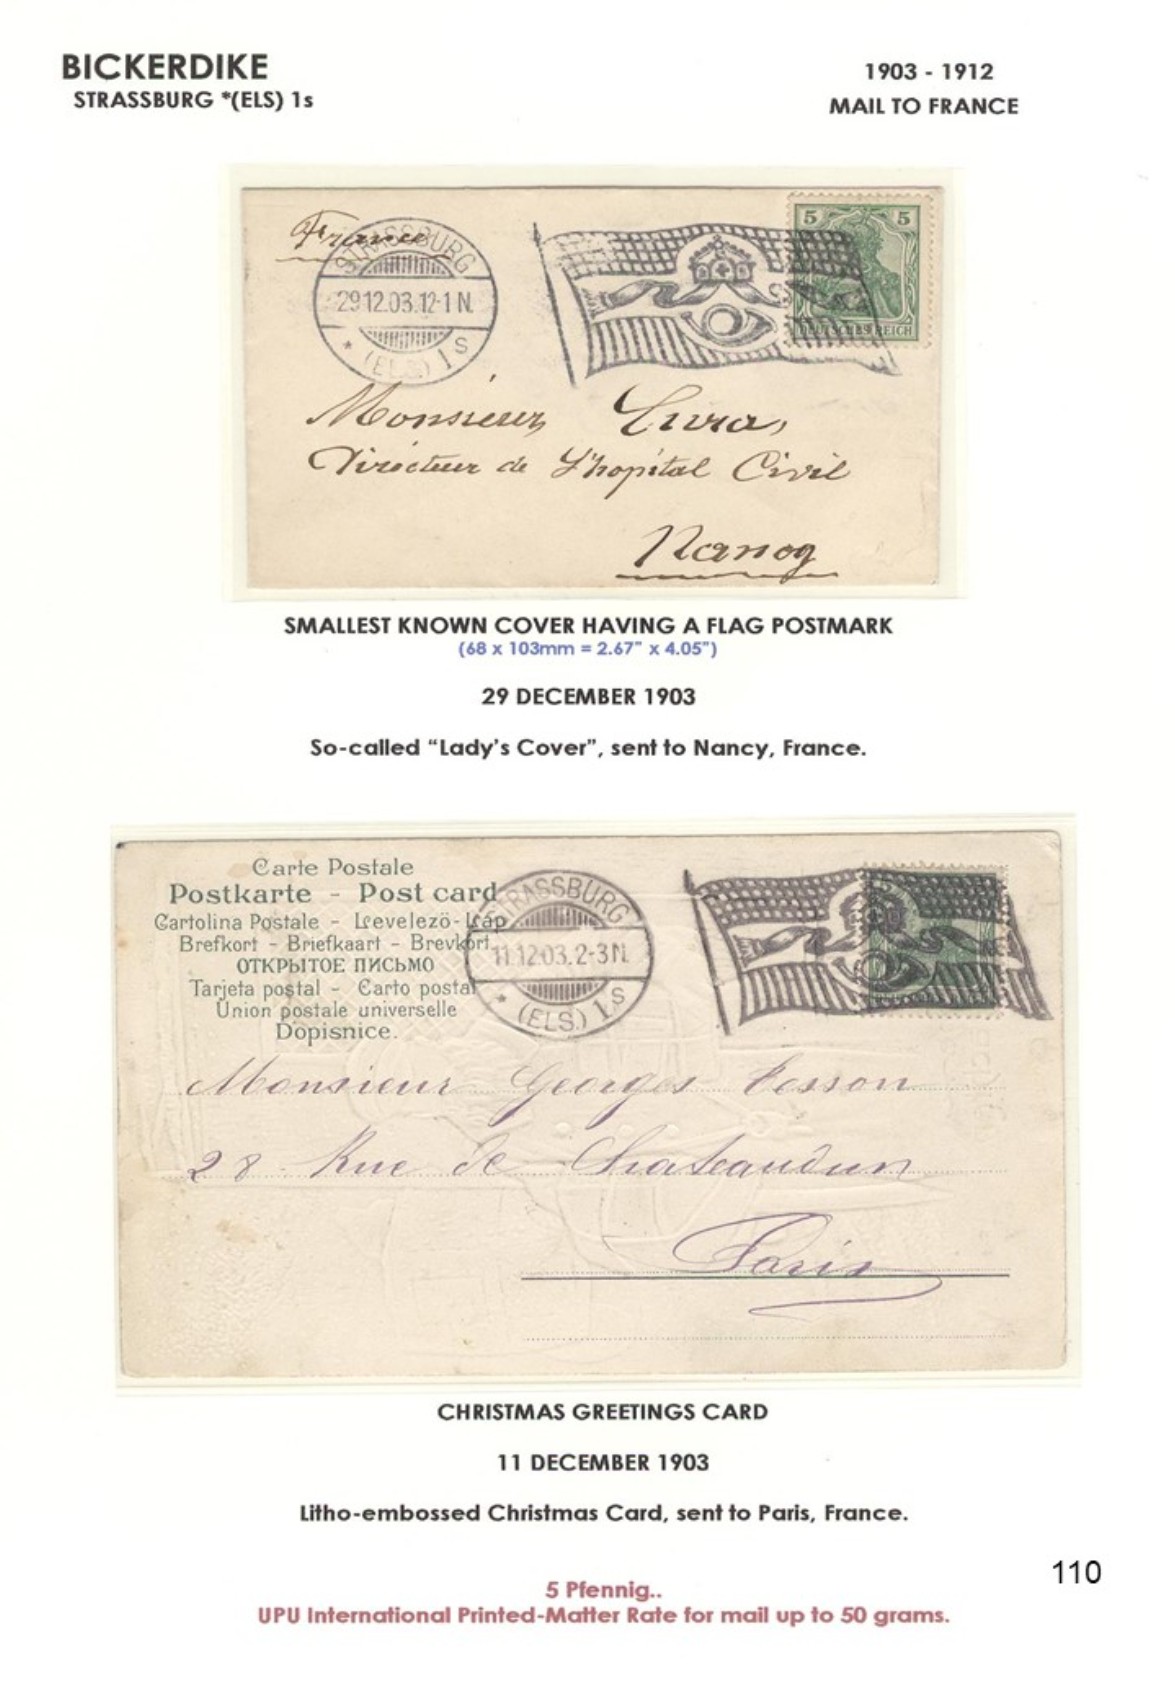 BICKERDIKE
STRASSBURG *(ELS) 1s
1903 - 1912
MAIL TO FRANCE
France
STRASSBURG
29.12.03.12-1 N.
* (ELS.) 1 s
5 5
DEUTSCHES REICH
Monsieur
Directeur de L'hopital Civil
Nancy
SMALLEST KNOWN COVER HAVING A FLAG POSTMARK
(68 x 103mm = 2.67" x 4.05")
29 DECEMBER 1903
So-called “Lady’s Cover”, sent to Nancy, France.
Carte Postale
Postkarte - Post card
Cartolina Postale - Levelezö-Láp
Brefkort - Briefkaart - Brevkort
ОТКРЫТОЕ ПИСЬМО
Tarjeta postal - Carto postal
Union postale universelle
Dopisnice.
STRASSBURG
11.12.03. 2-3 N.
* (ELS.) 1. s
Monsieur Georges
28 Rue de Chateaudun
Paris
CHRISTMAS GREETINGS CARD
11 DECEMBER 1903
Litho-embossed Christmas Card, sent to Paris, France.
110
5 Pfennig..
UPU International Printed-Matter Rate for mail up to 50 grams.